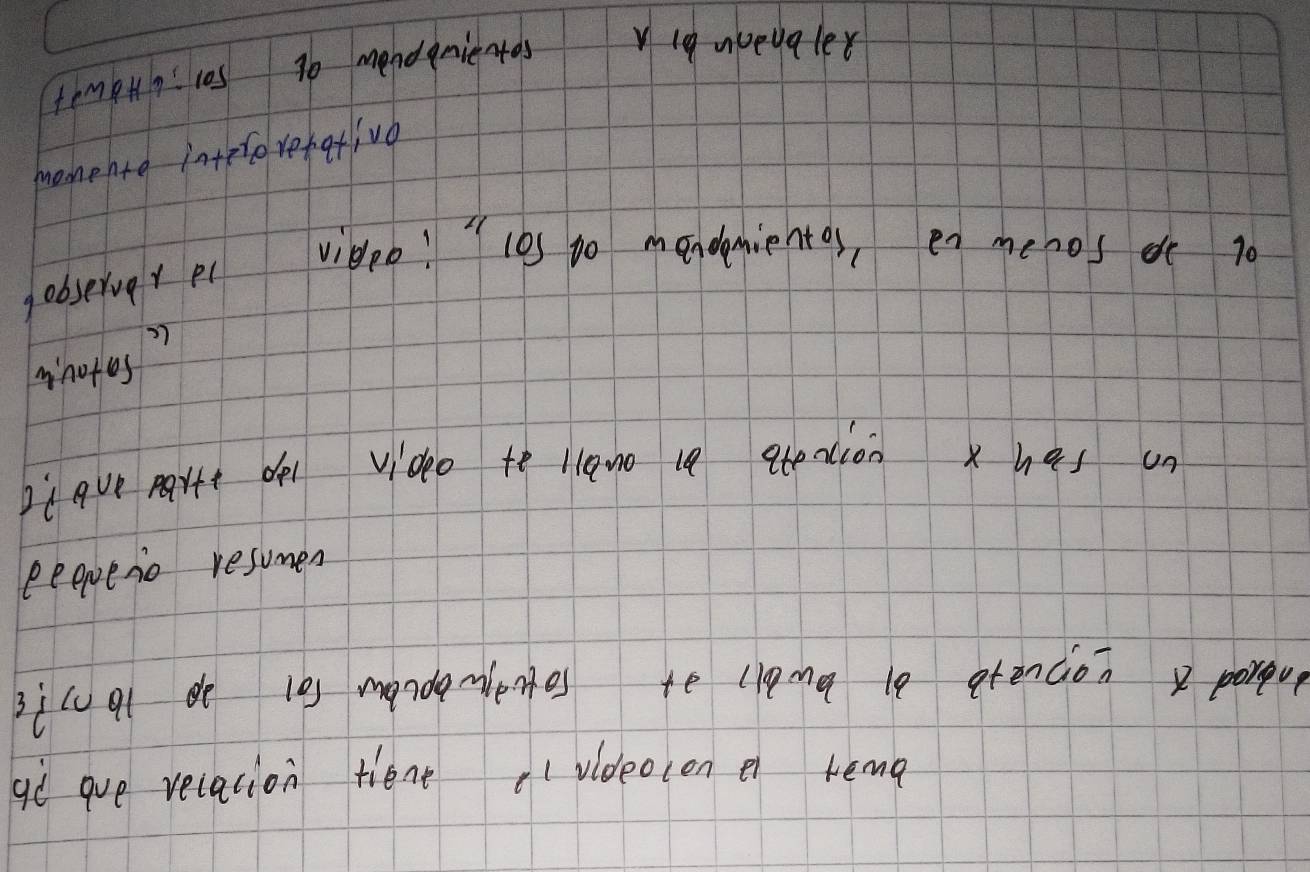 tema#7: los 10 mendamientos y la nueva ley
momento interpretativo
1 observar el video: "los 10 mandamientos, en menos de 10
minutos"
2¿ que parte del video te llamo la atención y has un
pequeño resumen
3¿ cual de los mandamientos te llama la atención y porque
4¿ que relación tiene el video con el tema